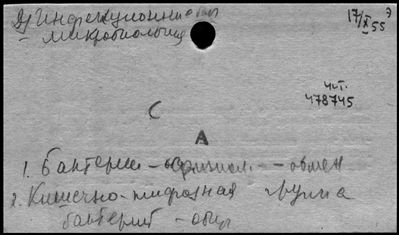 Инфекционный
- микробиология
17/X 55 Э
чит.
478745
С
А
1. Бактерии - - обмен
2. Кишечно-тифозная группа
бактерий - общ